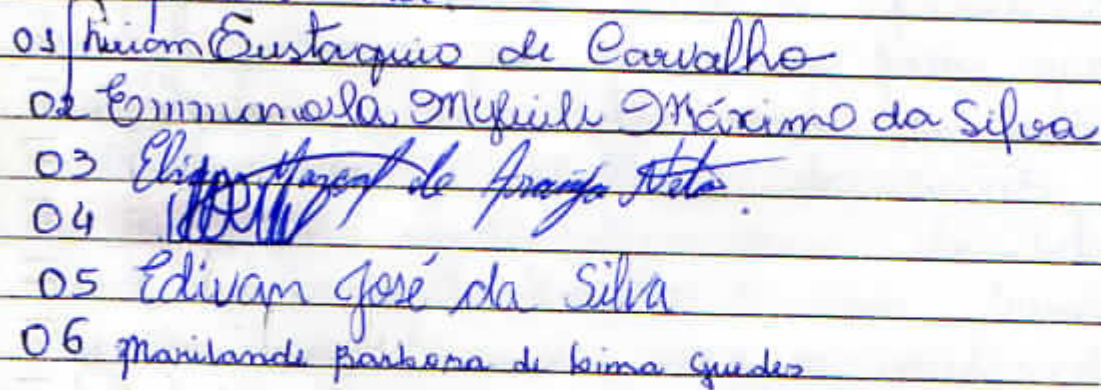 01 Eustaquio de Carvalho
02 Emmanuela Máximo da Silva
03 de Araújo Neto
04
05 Edivan José da Silva
06 Marilande Barbosa de Lima Guedes